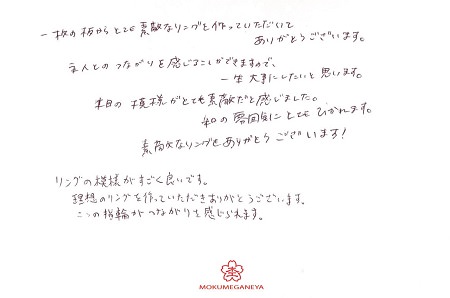 一枚の板からとても素敵なリングを作っていただいて
ありがとうございます。
主人とのつながりを感じることができますので、
一生大事にしたいと思います。
木目の模様がとても素敵だと感じました。
和の雰囲気にとてもひかれます。
素敵なリングをありがとうございます!
リングの模様がすごく良いです。
理想のリングを作っていただきありがとうございます。
二つの指輪がつながりを感じられます。
MOKUMEGANEYA